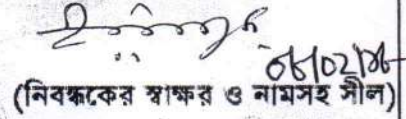 06/02/26
(নিবন্ধকের স্বাক্ষর ও নামসহ সীল)